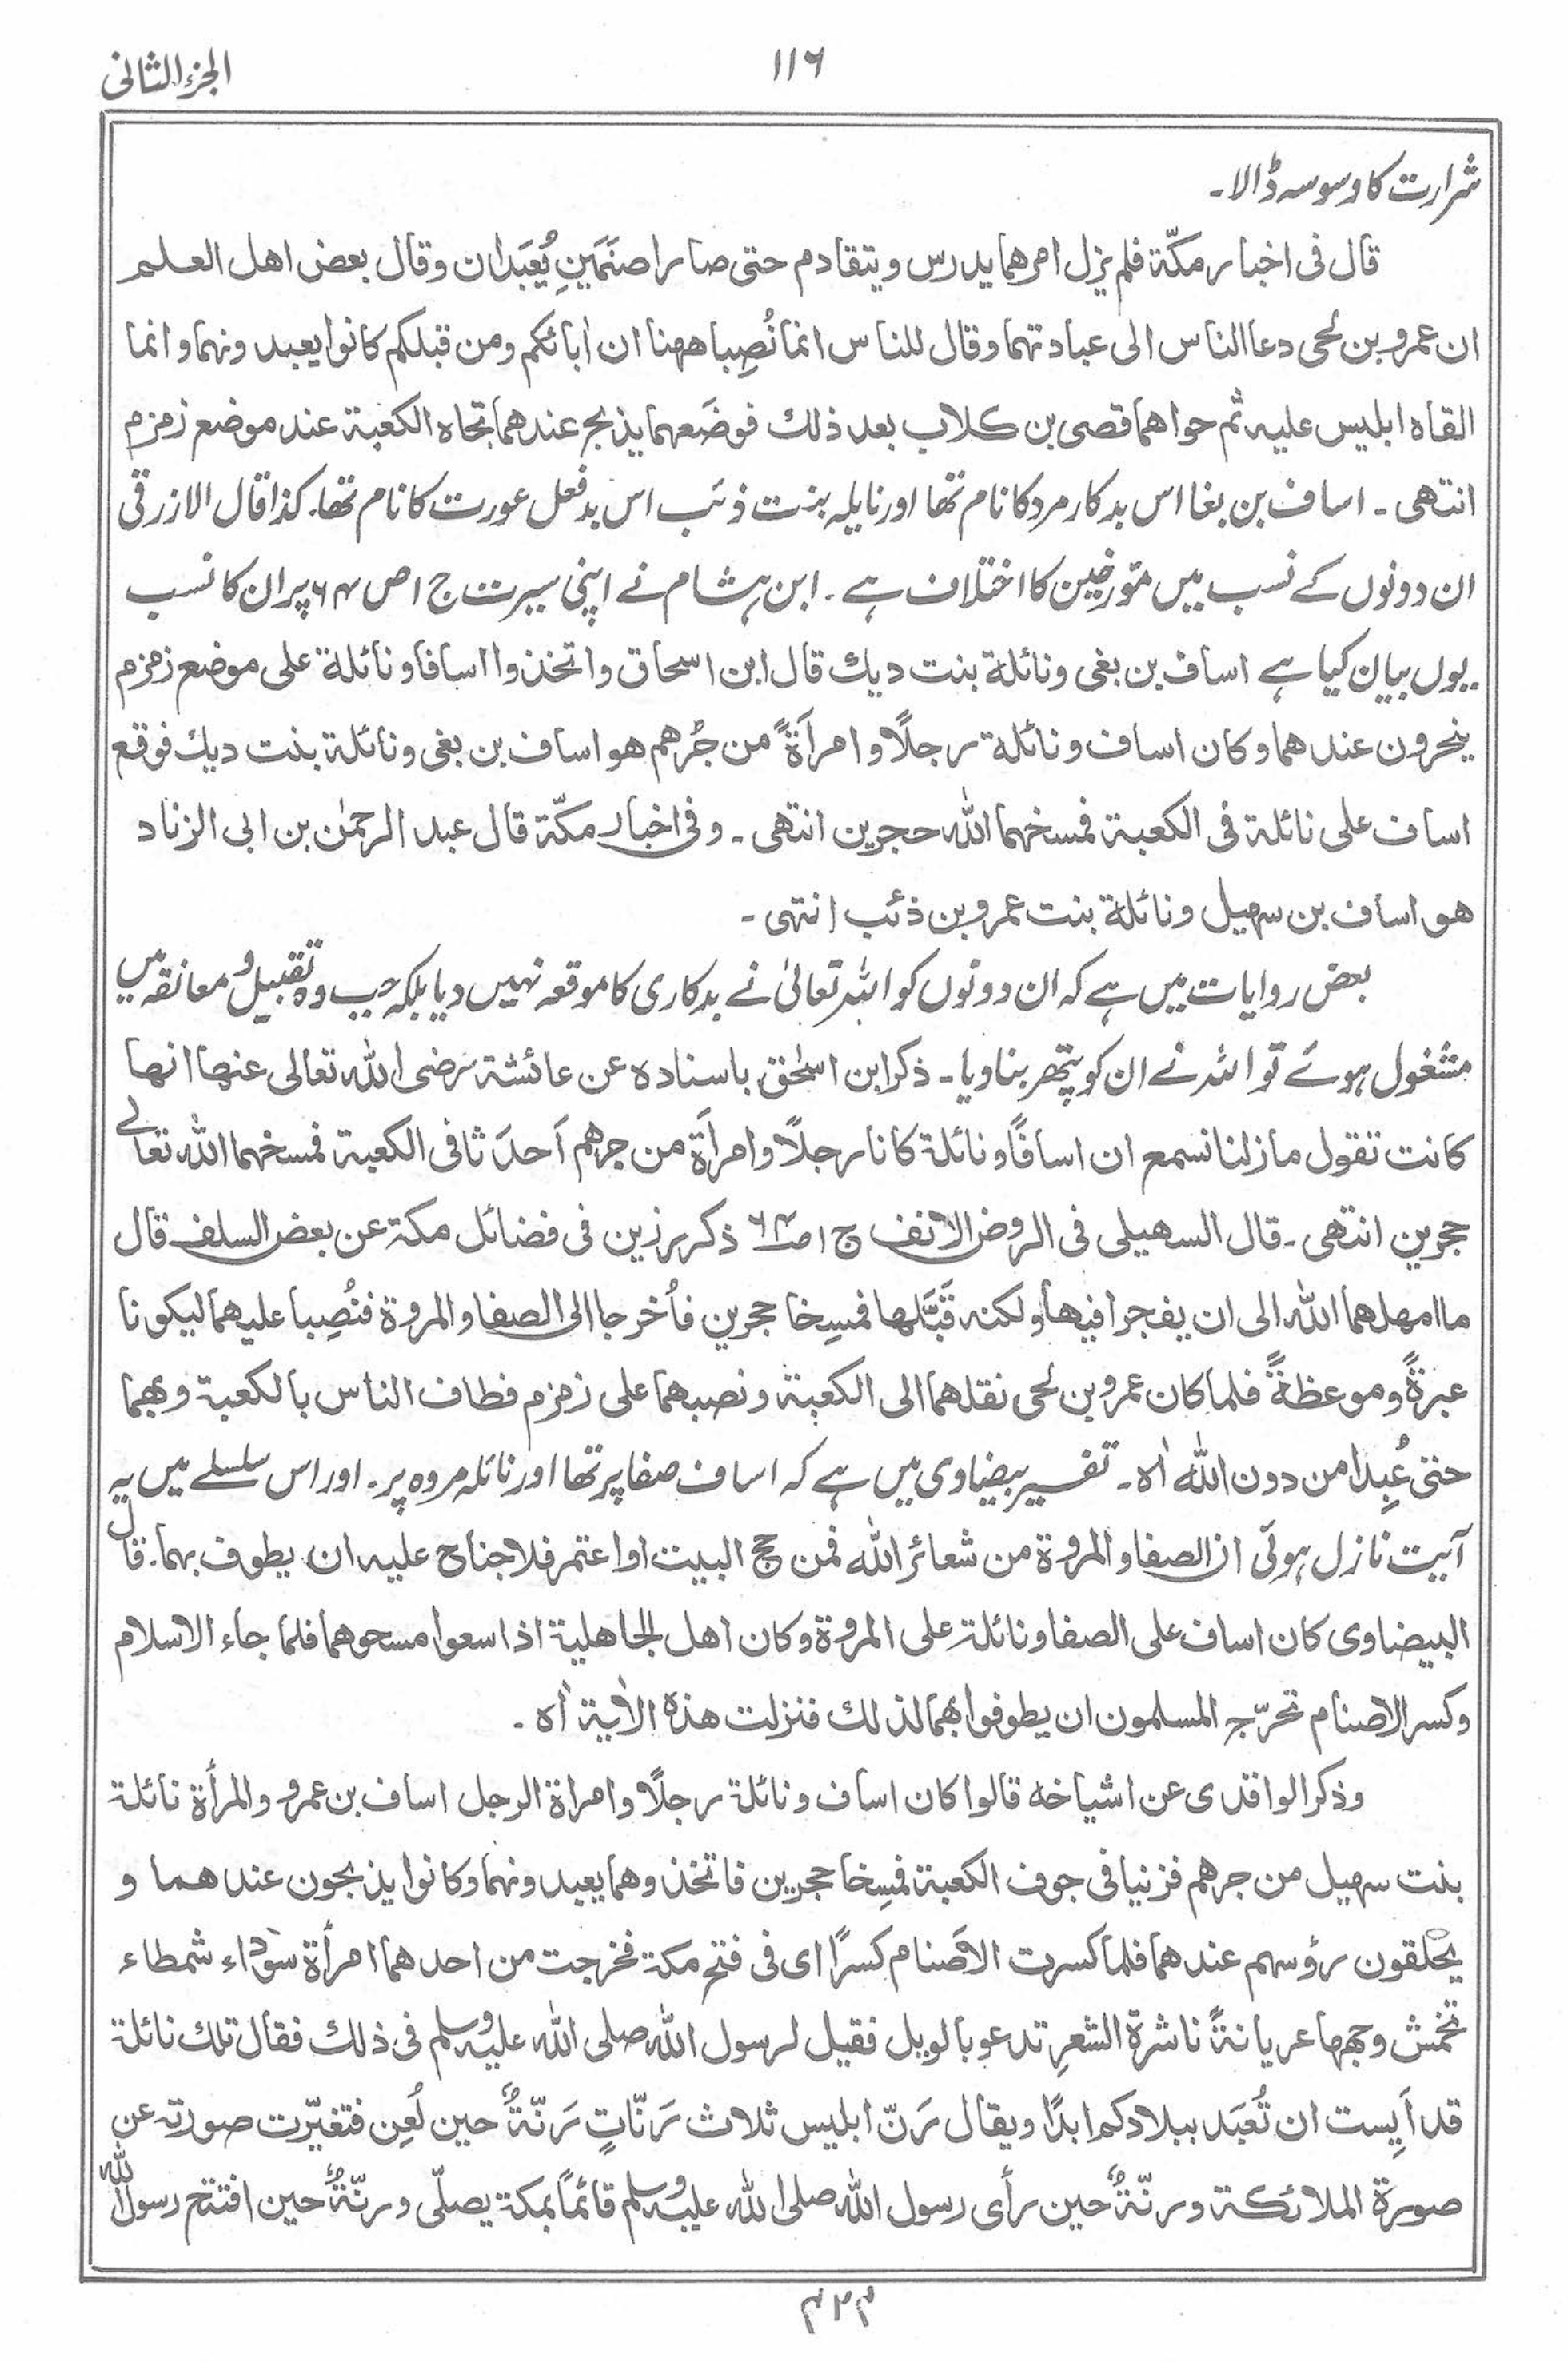 الجزء الثانی
۱۱۶
شرارت کا وسوسہ ڈالا۔
قال فی اخبار مکّة فلم یزل امرهما یدرس ویتقادم حتی صارا صنَمَینِ یُعبَدان وقال بعض اهل العلم
ان عمرو بن لُحی دعا الناس الی عبادتهما وقال للناس انما نُصِبا ههنا ان اٰبائکم ومن قبلکم کانوا یعبدونهما وانما
القاه ابلیس علیه ثم حواهما قصی بن کلاب بعد ذلك فوضَعهما یذبح عندهما تجاه الکعبة عند موضع زمزم
انتهی ۔ اساف بن بغا اس بدکار مرد کا نام تھا اور نایلہ بنت ذئب اس بدفعل عورت کا نام تھا۔ کذا قال الازرقی
ان دونوں کے نسب میں مؤرخین کا اختلاف ہے ۔ ابن ہشام نے اپنی سیرت ج ۱ ص ۶۴ پر ان کا نسب
یوں بیان کیا ہے اساف بن بغی ونائلة بنت دیك قال ابن اسحاق واتخذوا اسافا ونائلة علی موضع زمزم
ینحرون عندهما وکان اساف ونائلة رجلًا وامرأةً من جُرهم هو اساف بن بغی ونائلة بنت دیك فوقع
اساف علی نائلة فی الکعبة فمسخهما اللّٰه حجرین انتهی ۔ وفی اخبار مکّة قال عبد الرحمٰن بن ابی الزناد
هو اساف بن سهیل ونائلة بنت عمرو بن ذئب انتهی ۔
بعض روایات میں ہے کہ ان دونوں کو اللہ تعالیٰ نے بدکاری کا موقعہ نہیں دیا بلکہ جب وہ تقبیل و معانقہ میں
مشغول ہوئے تو اللہ نے ان کو پتھر بنا دیا ۔ ذکر ابن اسحٰق باسناده عن عائشة رضی اللّٰه تعالی عنها انها
کانت تقول ما زلنا نسمع ان اسافًا ونائلة کانا رجلًا وامرأة من جرهم اَحدَثا فی الکعبة فمسخهما اللّٰه تعالٰے
حجرین انتهی ۔ قال السهیلی فی الروض الانف ج ۱ ص ۶۴ ذکر رزین فی فضائل مکة عن بعض السلف قال
ما امهلهما اللّٰه الی ان یفجرا فیها ولکنه قبَّلها فمسِخا حجرین فاُخرجا الی الصفا والمروة فنُصِبا علیهما لیکونا
عبرةً وموعظةً فلما کان عمرو بن لُحی نقلهما الی الکعبة ونصبهما علی زمزم فطاف الناس بالکعبة وبهما
حتی عُبِدا من دون اللّٰه اٰہ ۔ تفسیر بیضاوی میں ہے کہ اساف صفا پر تھا اور نائلہ مروہ پر ۔ اور اس سلسلے میں یہ
آیت نازل ہوئی ان الصفا والمروة من شعائر اللّٰه فمن حج البیت او اعتمر فلا جناح علیه ان یطوف بهما۔ قال
البیضاوی کان اساف علی الصفا ونائلة علی المروة وکان اهل الجاهلیة اذا سعوا مسحوهما فلما جاء الاسلام
وکسر الاصنام تحرّج المسلمون ان یطوفوا بهما لذلك فنزلت هذه الاٰیة اٰہ ۔
وذکر الواقدی عن اشیاخه قالوا کان اساف ونائلة رجلًا وامراة الرجل اساف بن عمرو والمرأة نائلة
بنت سهیل من جرهم فزنیا فی جوف الکعبة فمسِخا حجرین فاتخذوهما یعبدونهما وکانوا یذبحون عندهما و
یحلقون رؤسهم عندهما فلما کسرت الاَصنام کسرًا ای فی فتح مکة فخرجت من احدهما امرأة سَوداء شمطاء
تخمش وجهها عریانةً ناشرة الشعرِ تدعو بالویل فقیل لرسول اللّٰه صلی اللّٰه علیه وسلم فی ذلك فقال تلك نائلة
قد اَیِست ان تُعبَد ببلادکم ابدًا ویقال رَنّ ابلیس ثلاث رَنّاتٍ رَنّةٌ حین لُعِن فتغیّرت صورته عن
صورة الملائکة ورنّةٌ حین رأی رسول اللّٰه صلی اللّٰه علیه وسلم قائمًا بمکة یصلّی ورنّةٌ حین افتتح رسول اللّٰه
۴۲۴